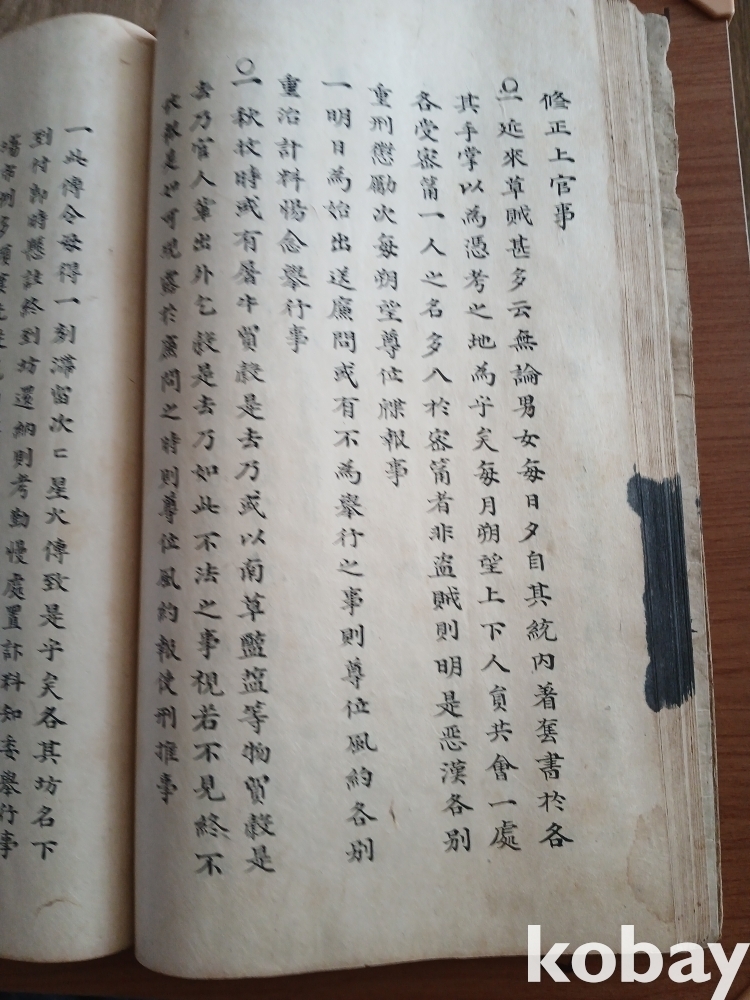 修正上官事
一近來草賊甚多云無論男女每日夕自其統內着套書於各
其手掌以為憑考之地為乎矣每月朔望上下人員共會一處
各受密筩一人之名多入於密筩者非盜賊則明是惡漢各別
重刑懲勵次每朔望尊位牒報事
一明日為始出送廉問或有不為舉行之事則尊位風約各別
重治計料惕念舉行事
一秋牧時或有屠牛貿穀是去乃或以南草鹽盆等物貿穀是
去乃官人輩出外乞穀是去乃如此不法之事視若不見終不
報是如可現露於廉問之時則尊位風約報使刑推事
一此傳令毋得一刻滯留次〻星火傳致是乎矣各其坊名下
到付卽時懸註終到坊還納則考勤慢處置計料知委舉行事
kobay